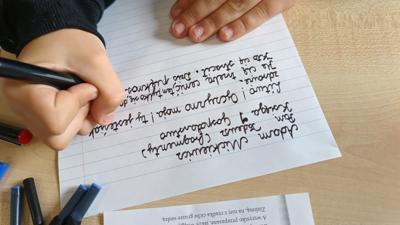 Adam Mickiewicz
Pan Tadeusz (fragmenty)
Księga I Gospodarstwo
Litwo! Ojczyzno moja! ty jesteś jak
zdrowie.
Ile cię trzeba cenić, ten tylko się do
kto cię stracił. Dziś piękno
A wszystko przepasane, jakby
Zieloną, na niej z rzadka ciche grusze siedzą.